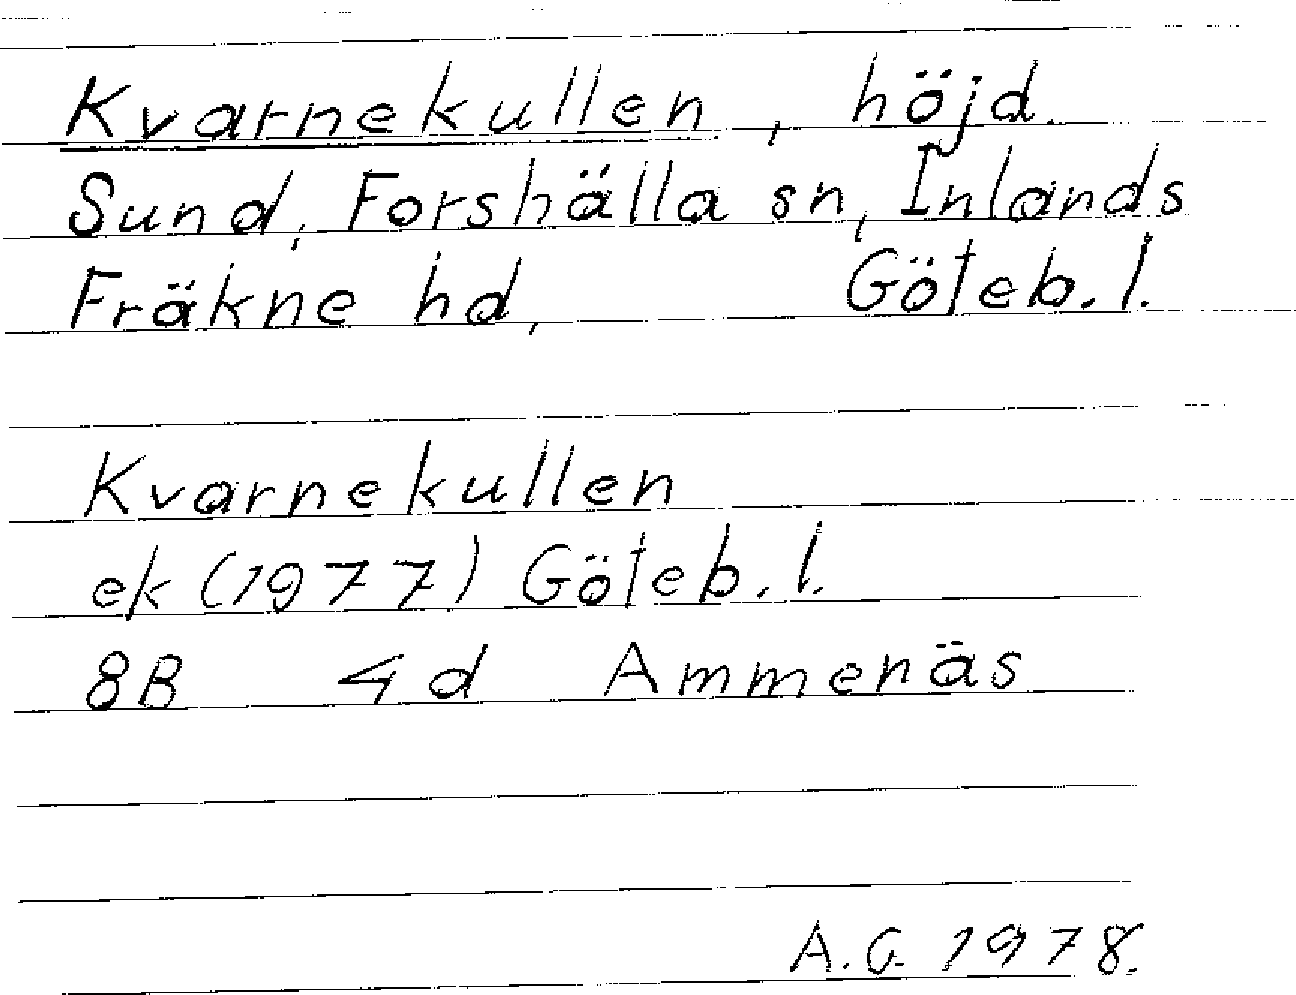 Kvarnekullen, höjd.
Sund, Forshälla sn, Inlands
Fräkne hd, Göteb. l.
Kvarnekullen
ek (1977) Göteb. l.
8B 4d Ammenäs
A.G. 1978.